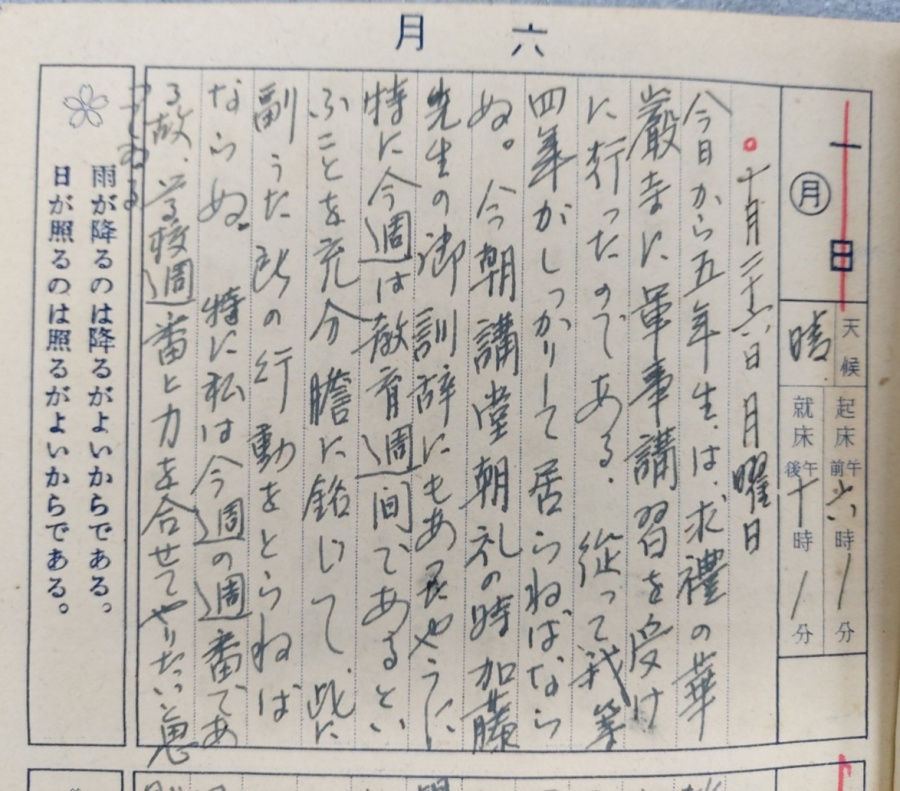 六月
一日
㊊
天候
晴
起床 午前 六時 / 分
就床 午後 十時 / 分
十月二十六日 月曜日
今日から五年生は、求禮の華
嚴寺に軍事講習を受け
に行ったのである。従って我等
四年がしっかりして居らねばなら
ぬ。今朝講堂朝礼の時加藤
先生の御訓辞にもあるやうに
特に今週は教育週間であるとい
ふことを充分膽に銘じて、此に
副うた此の行動をとらねば
ならぬ。特に私は今週の週番であ
る故、学校週番と力を合せてやりたいと思
つてゐる
雨が降るのは降るがよいからである。
日が照るのは照るがよいからである。